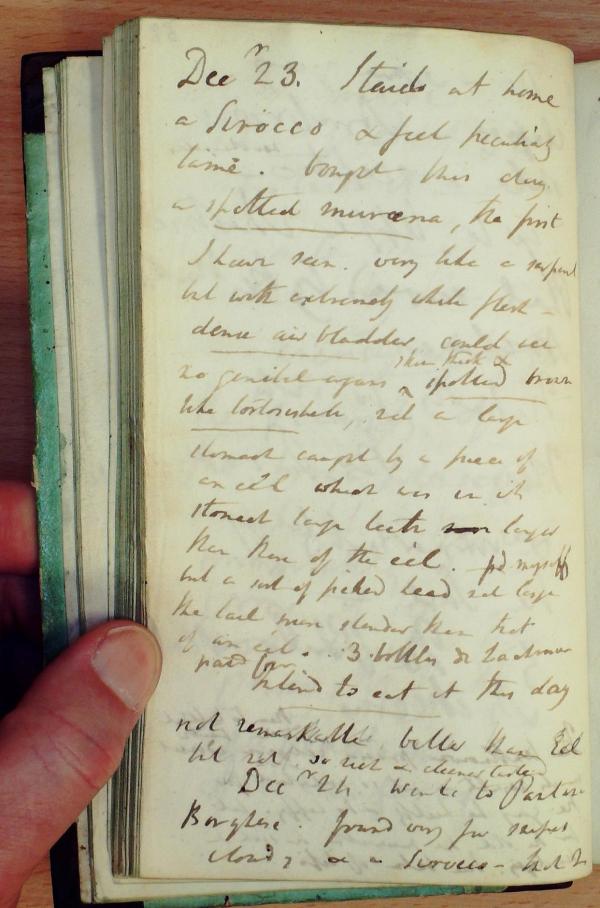 Decr 23. Staid at home
a Sirocco & feel peculiarly
lame. bought this day
a spotted murœna, the first
I have seen. very like a serpent
but with extremely white flesh -
dense air bladder, could see
no genital organs skin thick & spotted brown
like tortoiseshell, not a large
stomach caught by a piece of
an eel which was in its
stomach large teeth larger
than those of the eel.
but a sort of picked head not large
the tail more slender than that
of an eel. 3 bottles
paid for
intend to eat it this day
not remarkable better than Eel
but not so rich & cleaner tasted
Decr 24 went to
Borghese. found very few snipes
cloudy & a Sirocco -